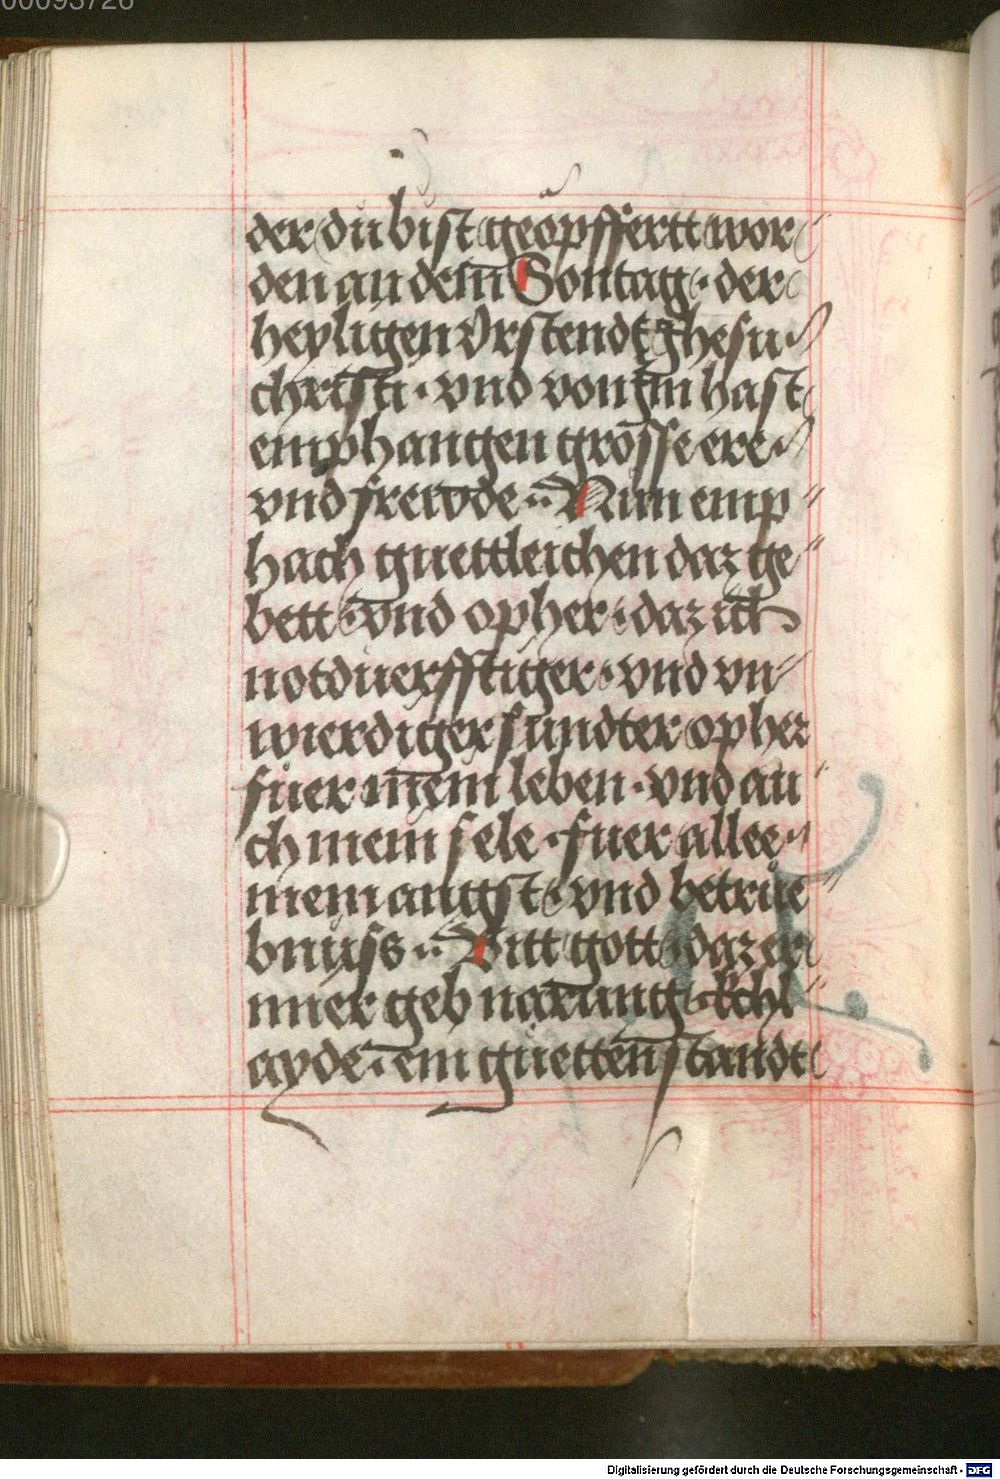 00093726
der du bist geopffertt wor
den an dem Sontag · der
heyligen Vrstendt Jhesu
christi · vnd von Im hast
emphangen grosse ere
vnd frewde ·· Nun emp
hach guettleichen daz ge
bett · vnd opher · daz ich
notduerfftiger · vnd vn
wierdiger sundter opher
fuer mein leben · vnd au
ch mein sele · fuer allee
mein anngst · vnd betrue
bnuss ·· Bitt gott · daz er
mier geb narung · kchl
ayde · ein guetten standt
Digitalisierung gefördert durch die Deutsche Forschungsgemeinschaft - DFG